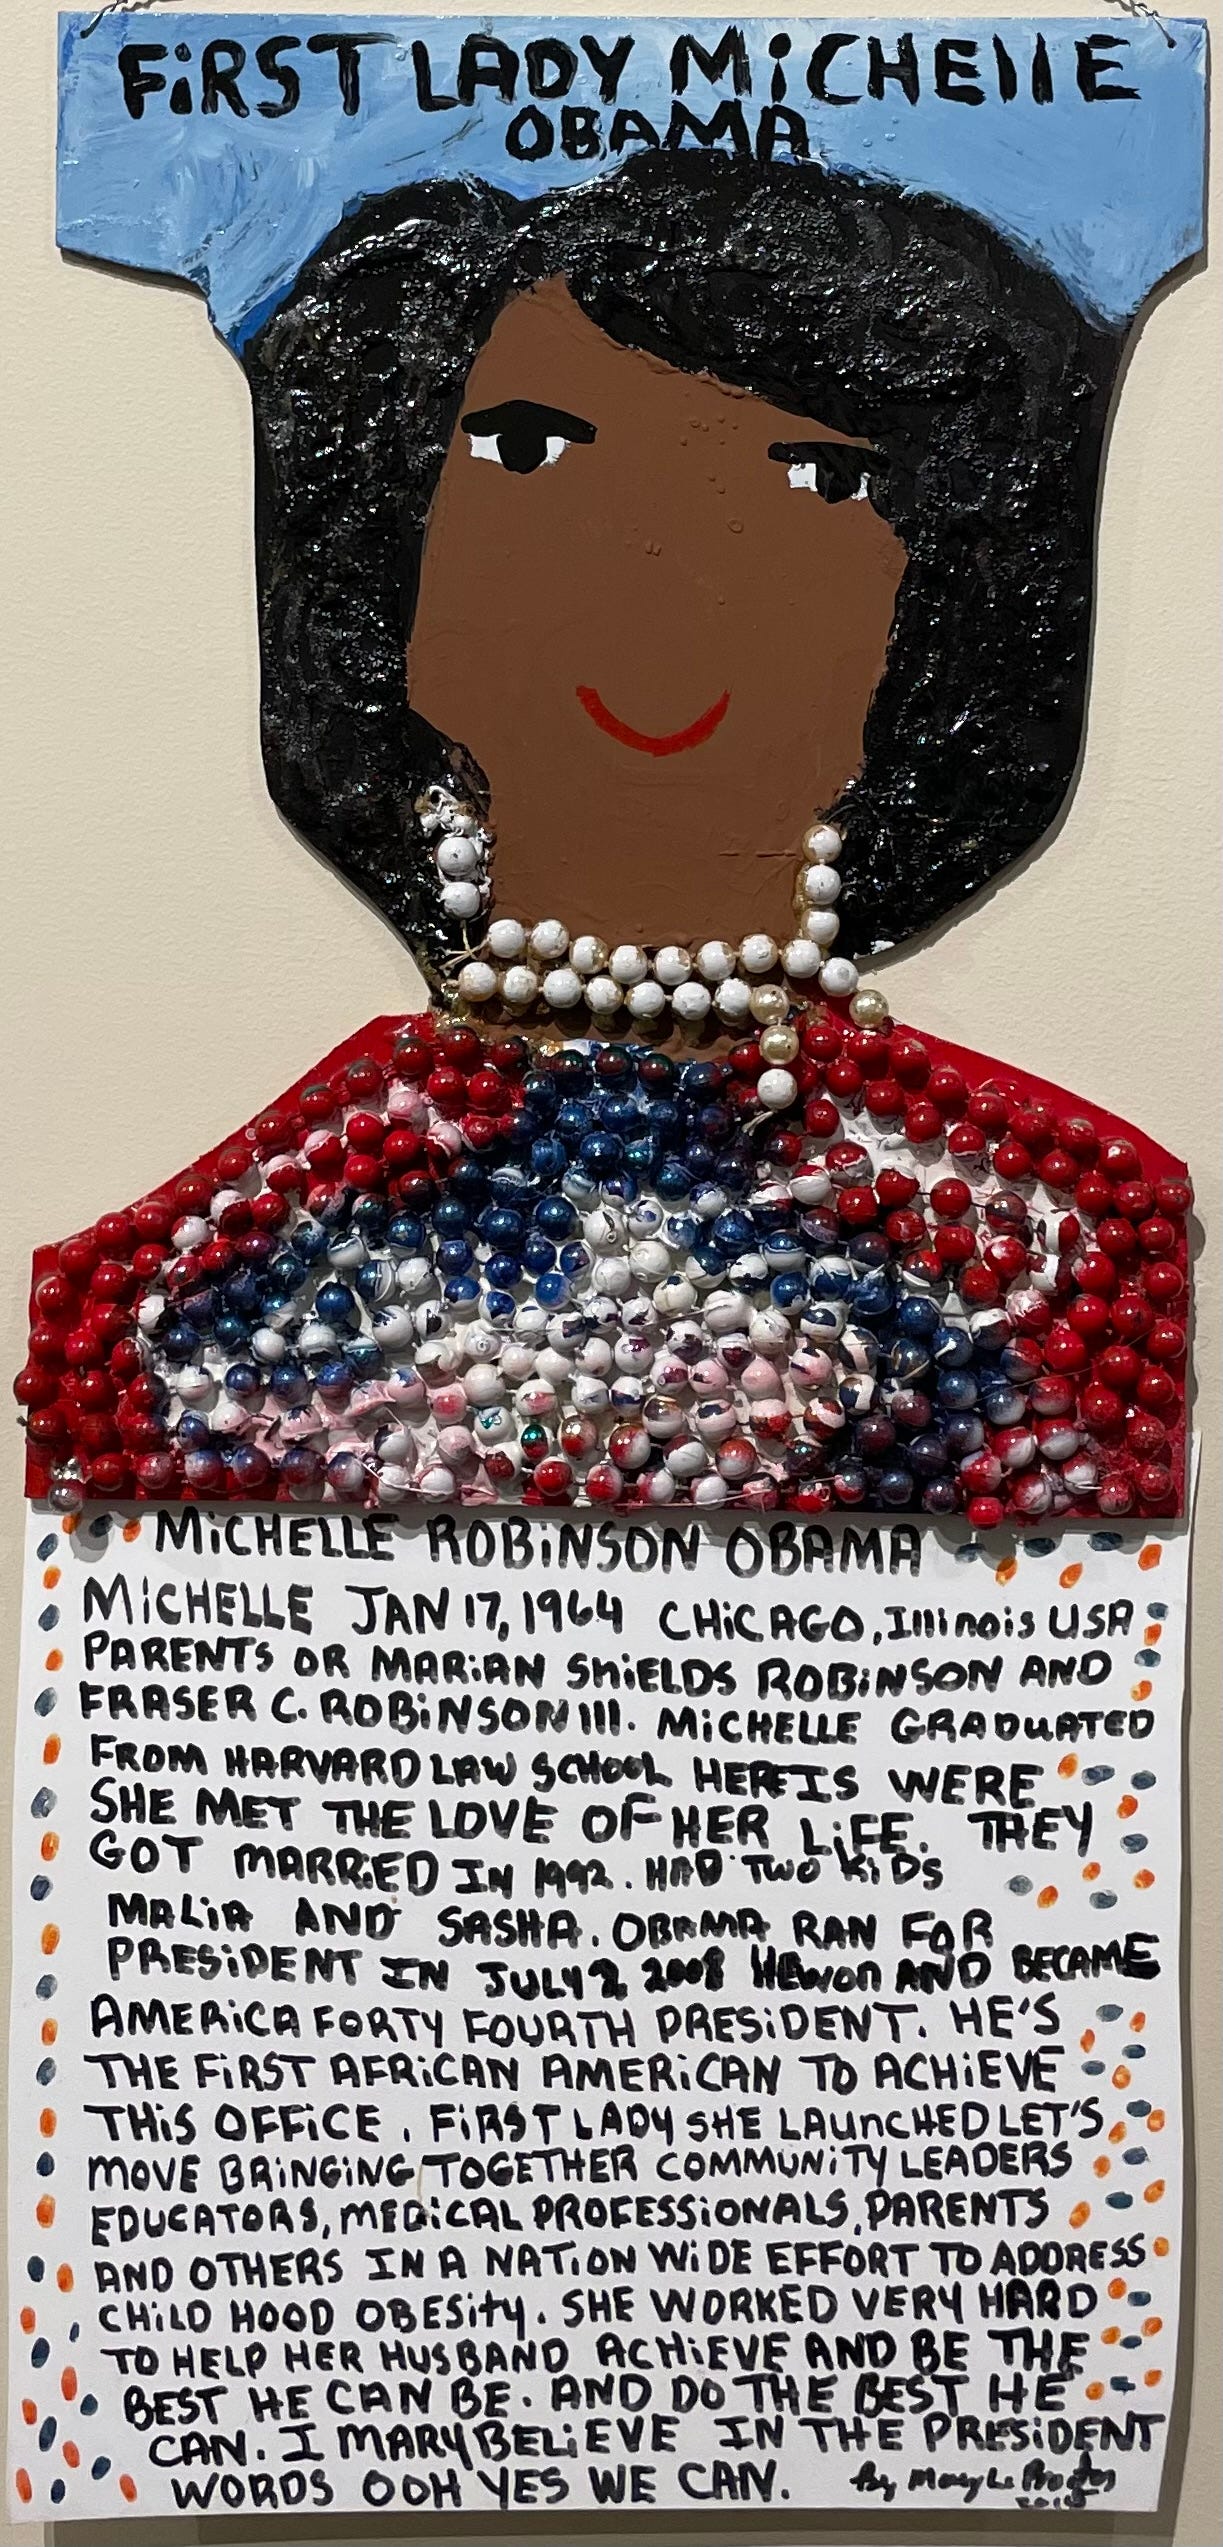 FiRST LADY MiCHEllE
OBAMA
MiCHELLE ROBiNSON OBAMA
MiCHELLE JAN 17, 1964 CHiCAGO, Illinois USA
PARENTS OR MARiAN SHiELDS ROBiNSON AND
FRASER C. ROBiNSON III. MiCHELLE GRADUATED
FROM HARVARD LAW SCHOOL HERE IS WERE
SHE MET THE LOVE OF HER LiFE. THEY
GOT MARRiED IN 1992. HAD TWO KiDS
MALiA AND SASHA. OBAMA RAN FOR
PRESiDENT IN JULY 2008 HE won AND BECAME
AMERiCA FORTY FOURTH PRESiDENT. HE'S
THE FiRST AFRiCAN AMERiCAN TO ACHiEVE
THiS OFFiCE. FiRST LADY SHE LAUnCHED LET'S
MOVE BRiNGiNG TOGETHER COMMUNiTY LEADERS
EDUCATORS, MEDiCAL PROFESSiONALS, PARENTS
AND OTHERS IN A NATiON WiDE EFFORT TO ADDRESS
CHiLD HOOD OBESity. SHE WORKED VERY HARD
TO HELP HER HUSBAND ACHiEVE AND BE THE
BEST HE CAN BE. AND DO THE BEST HE
CAN. I MARY BELiEVE IN THE PRESiDENT
WORDS OOH YES WE CAN. By Mary L. Proctor